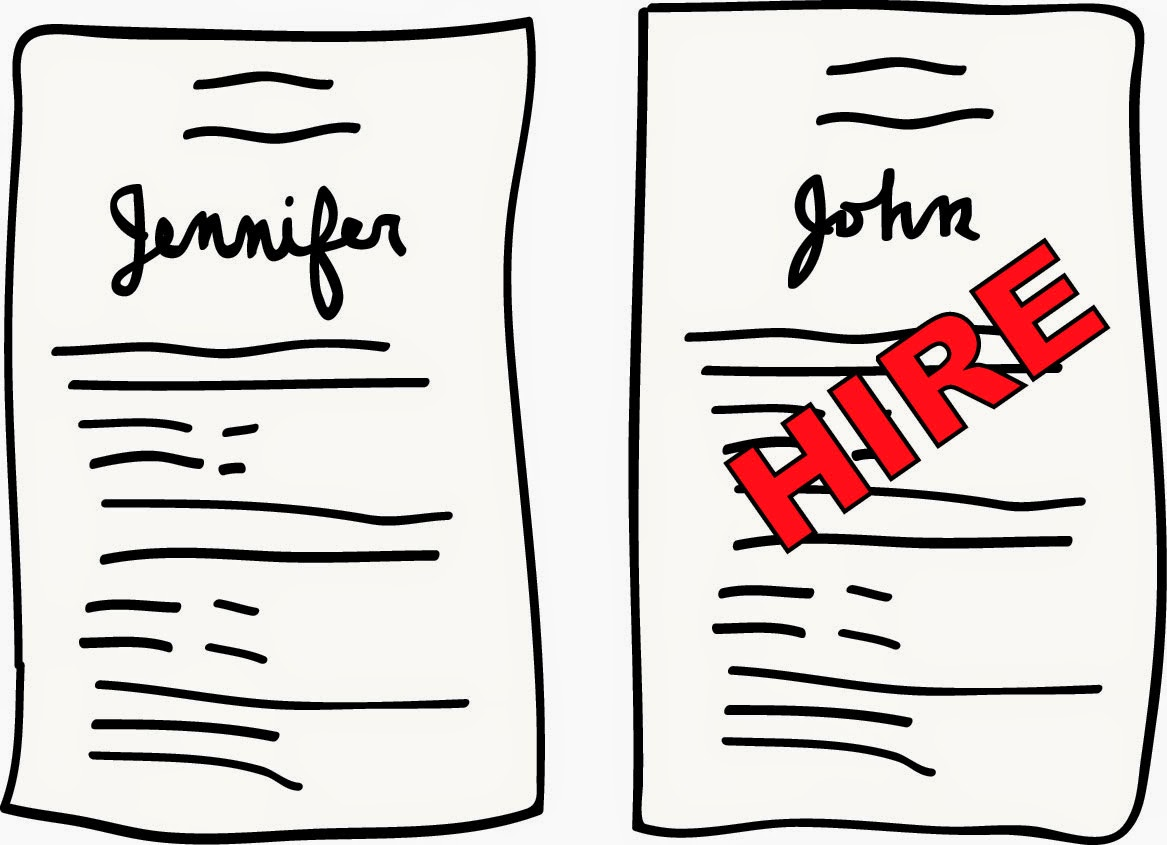 Jennifer
John
HIRE